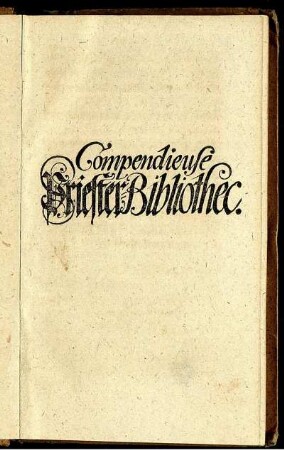 Compendieuse
Priester-Bibliothec.